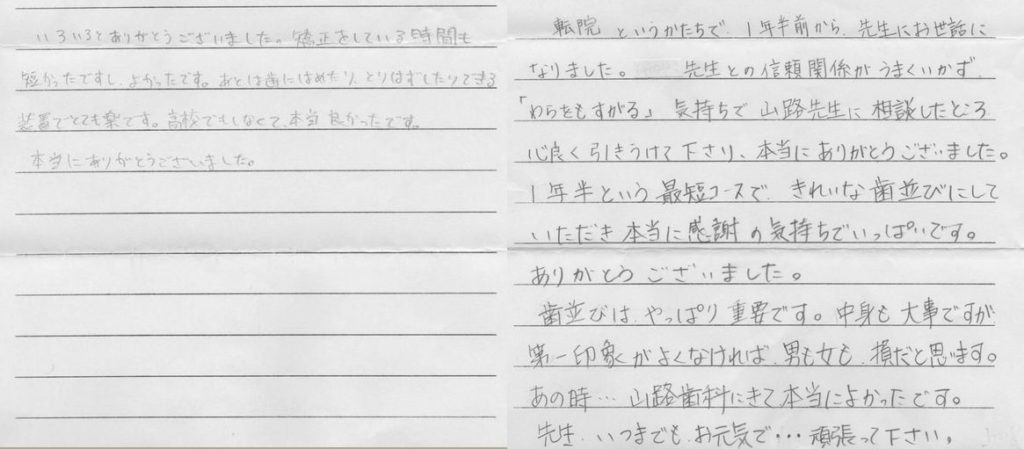 いろいろとありがとうございました。矯正をしている時間も
短かったですし、よかったです。あとは歯にはめたり、とりはずしたりできる
装置でとても楽です。高校でもしなくて、本当良かったです。
本当にありがとうございました。
転院 というかたちで、1年半前から、先生にお世話に
なりました。 先生との信頼関係がうまくいかず、
「わらをもすがる」気持ちで 山路先生に 相談したところ
心良く引きうけて下さり、本当にありがとうございました。
1年半という 最短コースで、きれいな歯並びにして
いただき 本当に感謝の気持ちでいっぱいです。
ありがとう ございました。
歯並びは、やっぱり 重要です。中身も 大事ですが
第一印象がよくなければ、男も女も、損だと思います。
あの時… 山路歯科にきて本当によかったです。
先生、いつまでも、お元気で・・・頑張って下さい。